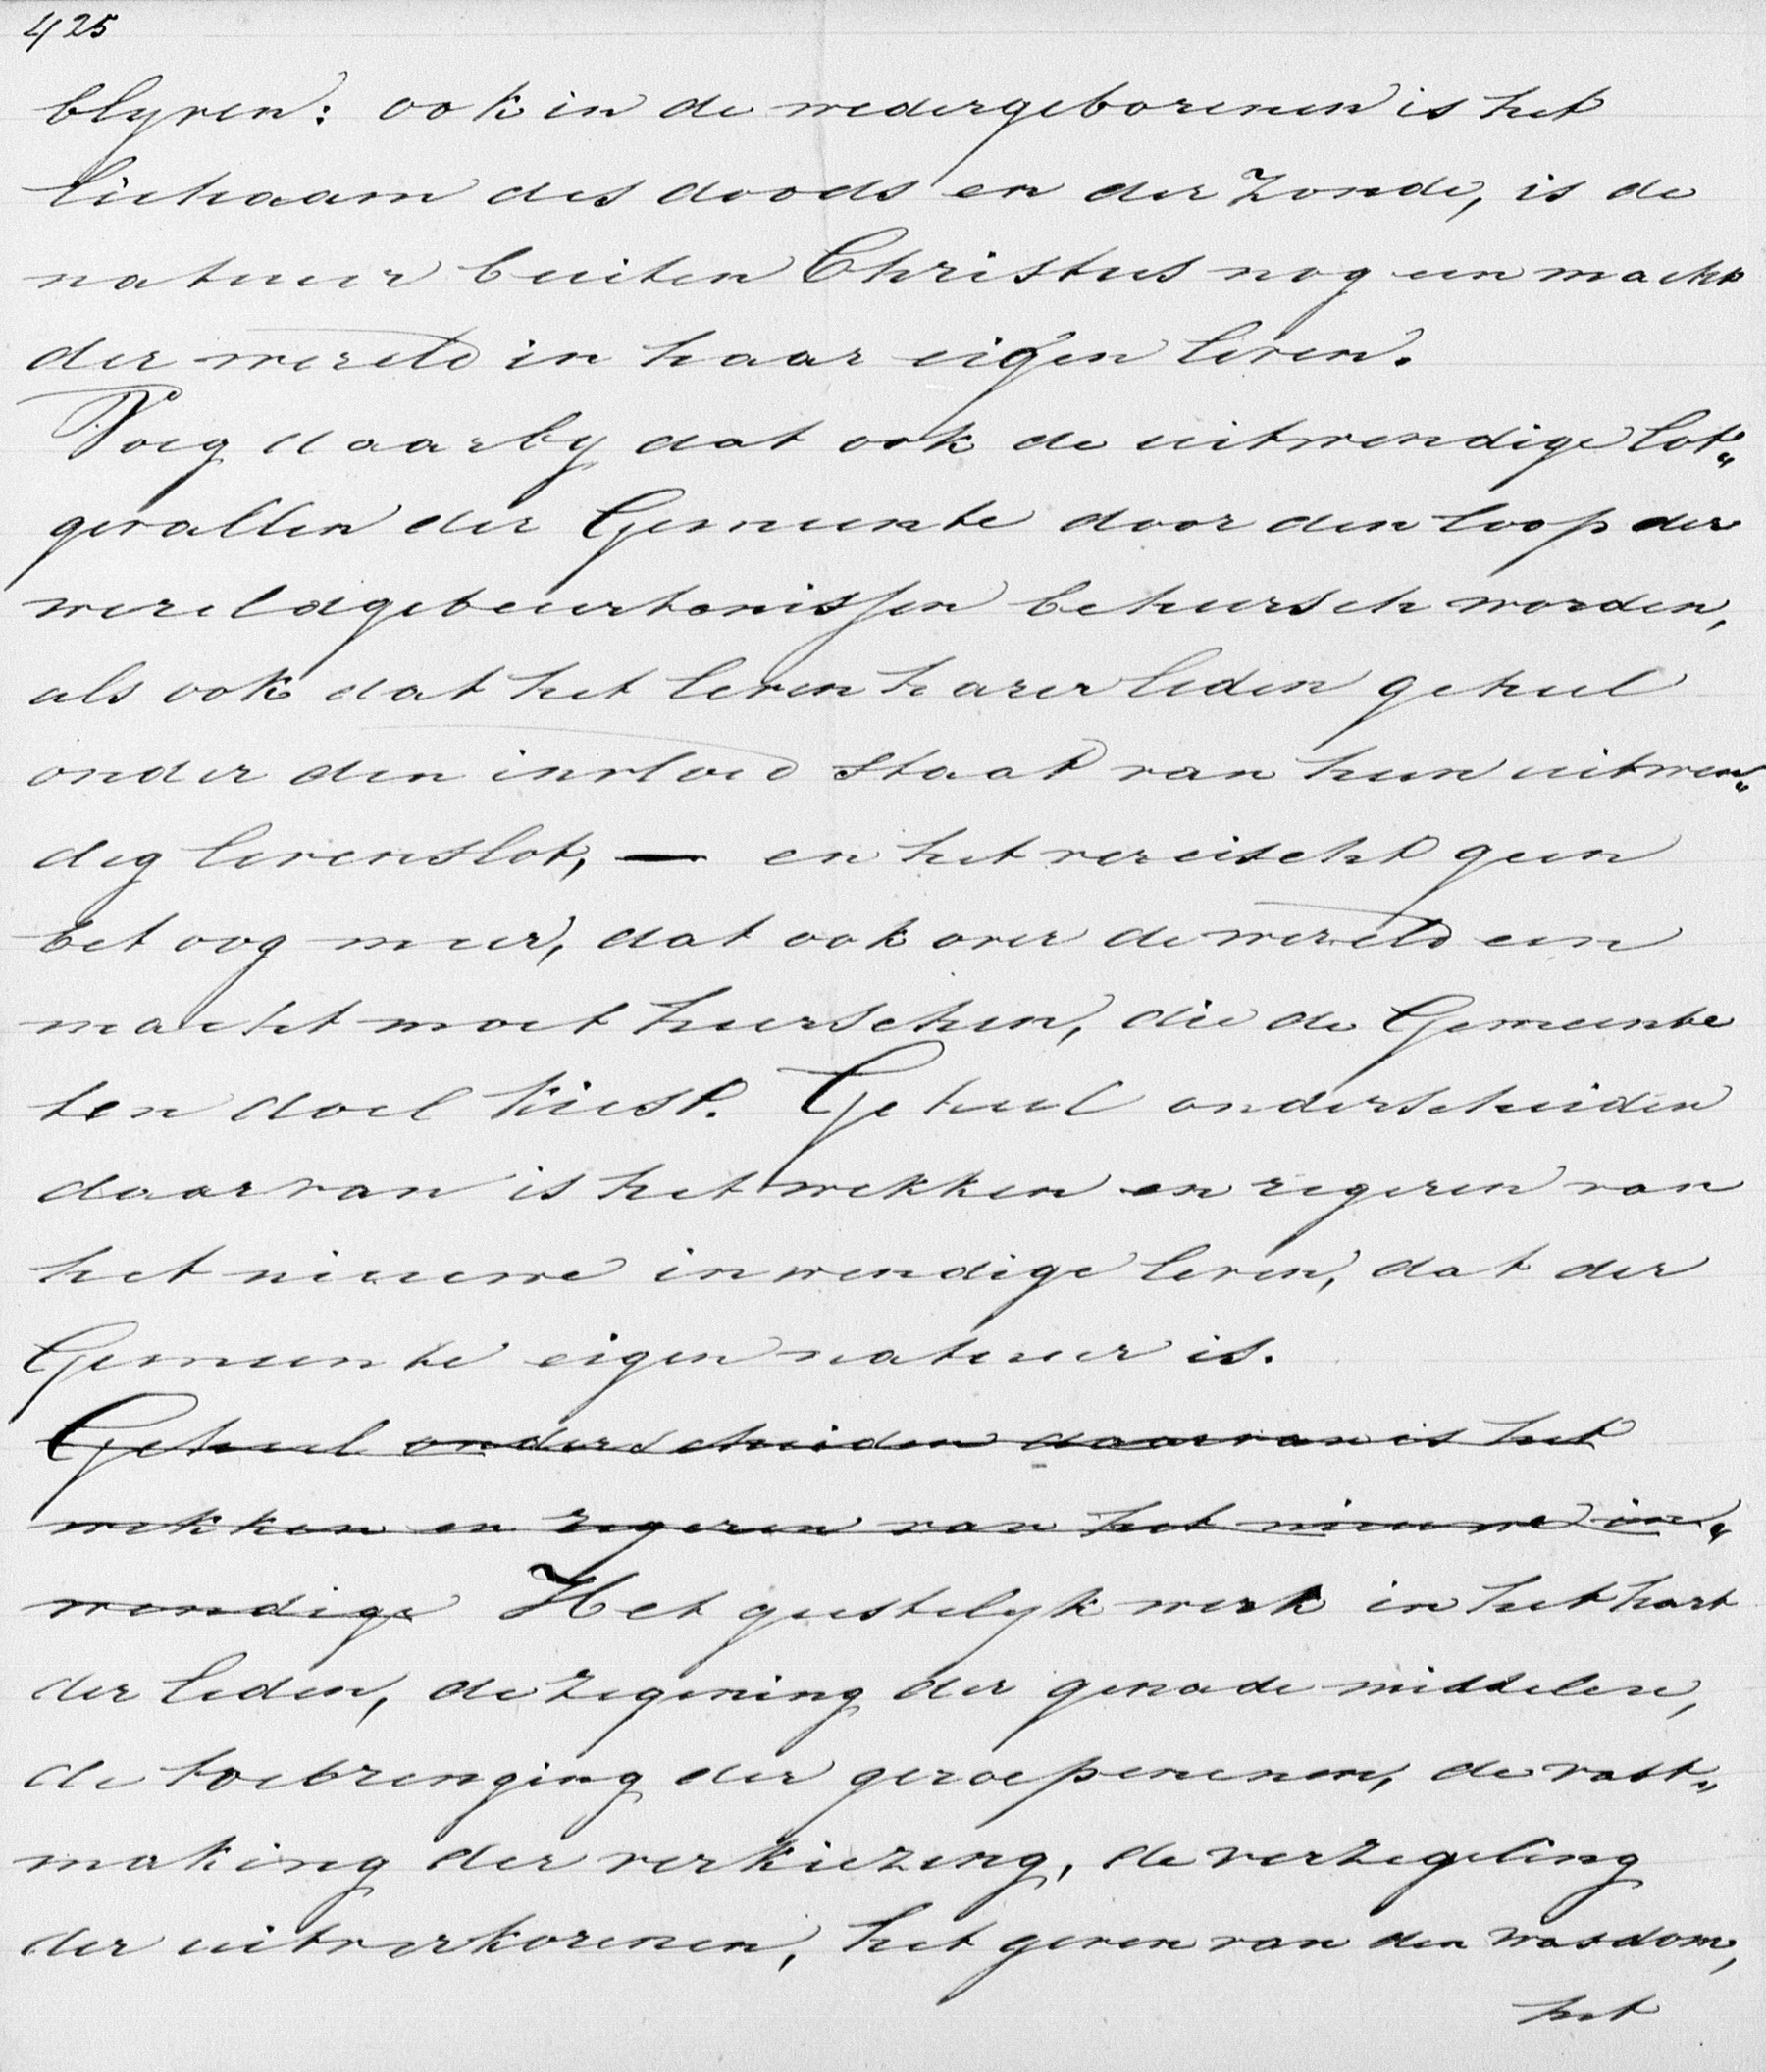 425
blyven: ook in de wedergeborenen is het
lichaam des doods en der zonde, is de
natuur buiten Christus nog een macht
der wereld in haar eigen leven.
Voeg daarby dat ook de uitwendige lot„
gevallen der Gemeente door den loop der
wereldgebeurtenissen beheersch worden,
als ook dat het leven harer leden geheel
onder den invloed staat van hun uitwen„
dig levenslot, — en het vereischt geen
betoog meer, dat ook over de wereld een
macht moet heerschen, die de Gemeente
ten doel kiest. Geheel onderscheiden
daarvan is het wekken en regeren van
het nieuwe inwendige leven, dat der
Gemeente eigen natuur is.
Geheel onderscheiden daarvan is het
wekken en regeren van het nieuwe in„
wendige Het geestelyk werk in het hart
der leden, de zegening der genade middelen,
de toebrenging der geroepenenen, de vast„
making der verkiezing, de verzegeling
der uitverkorenen, het geven van den wasdom,
het